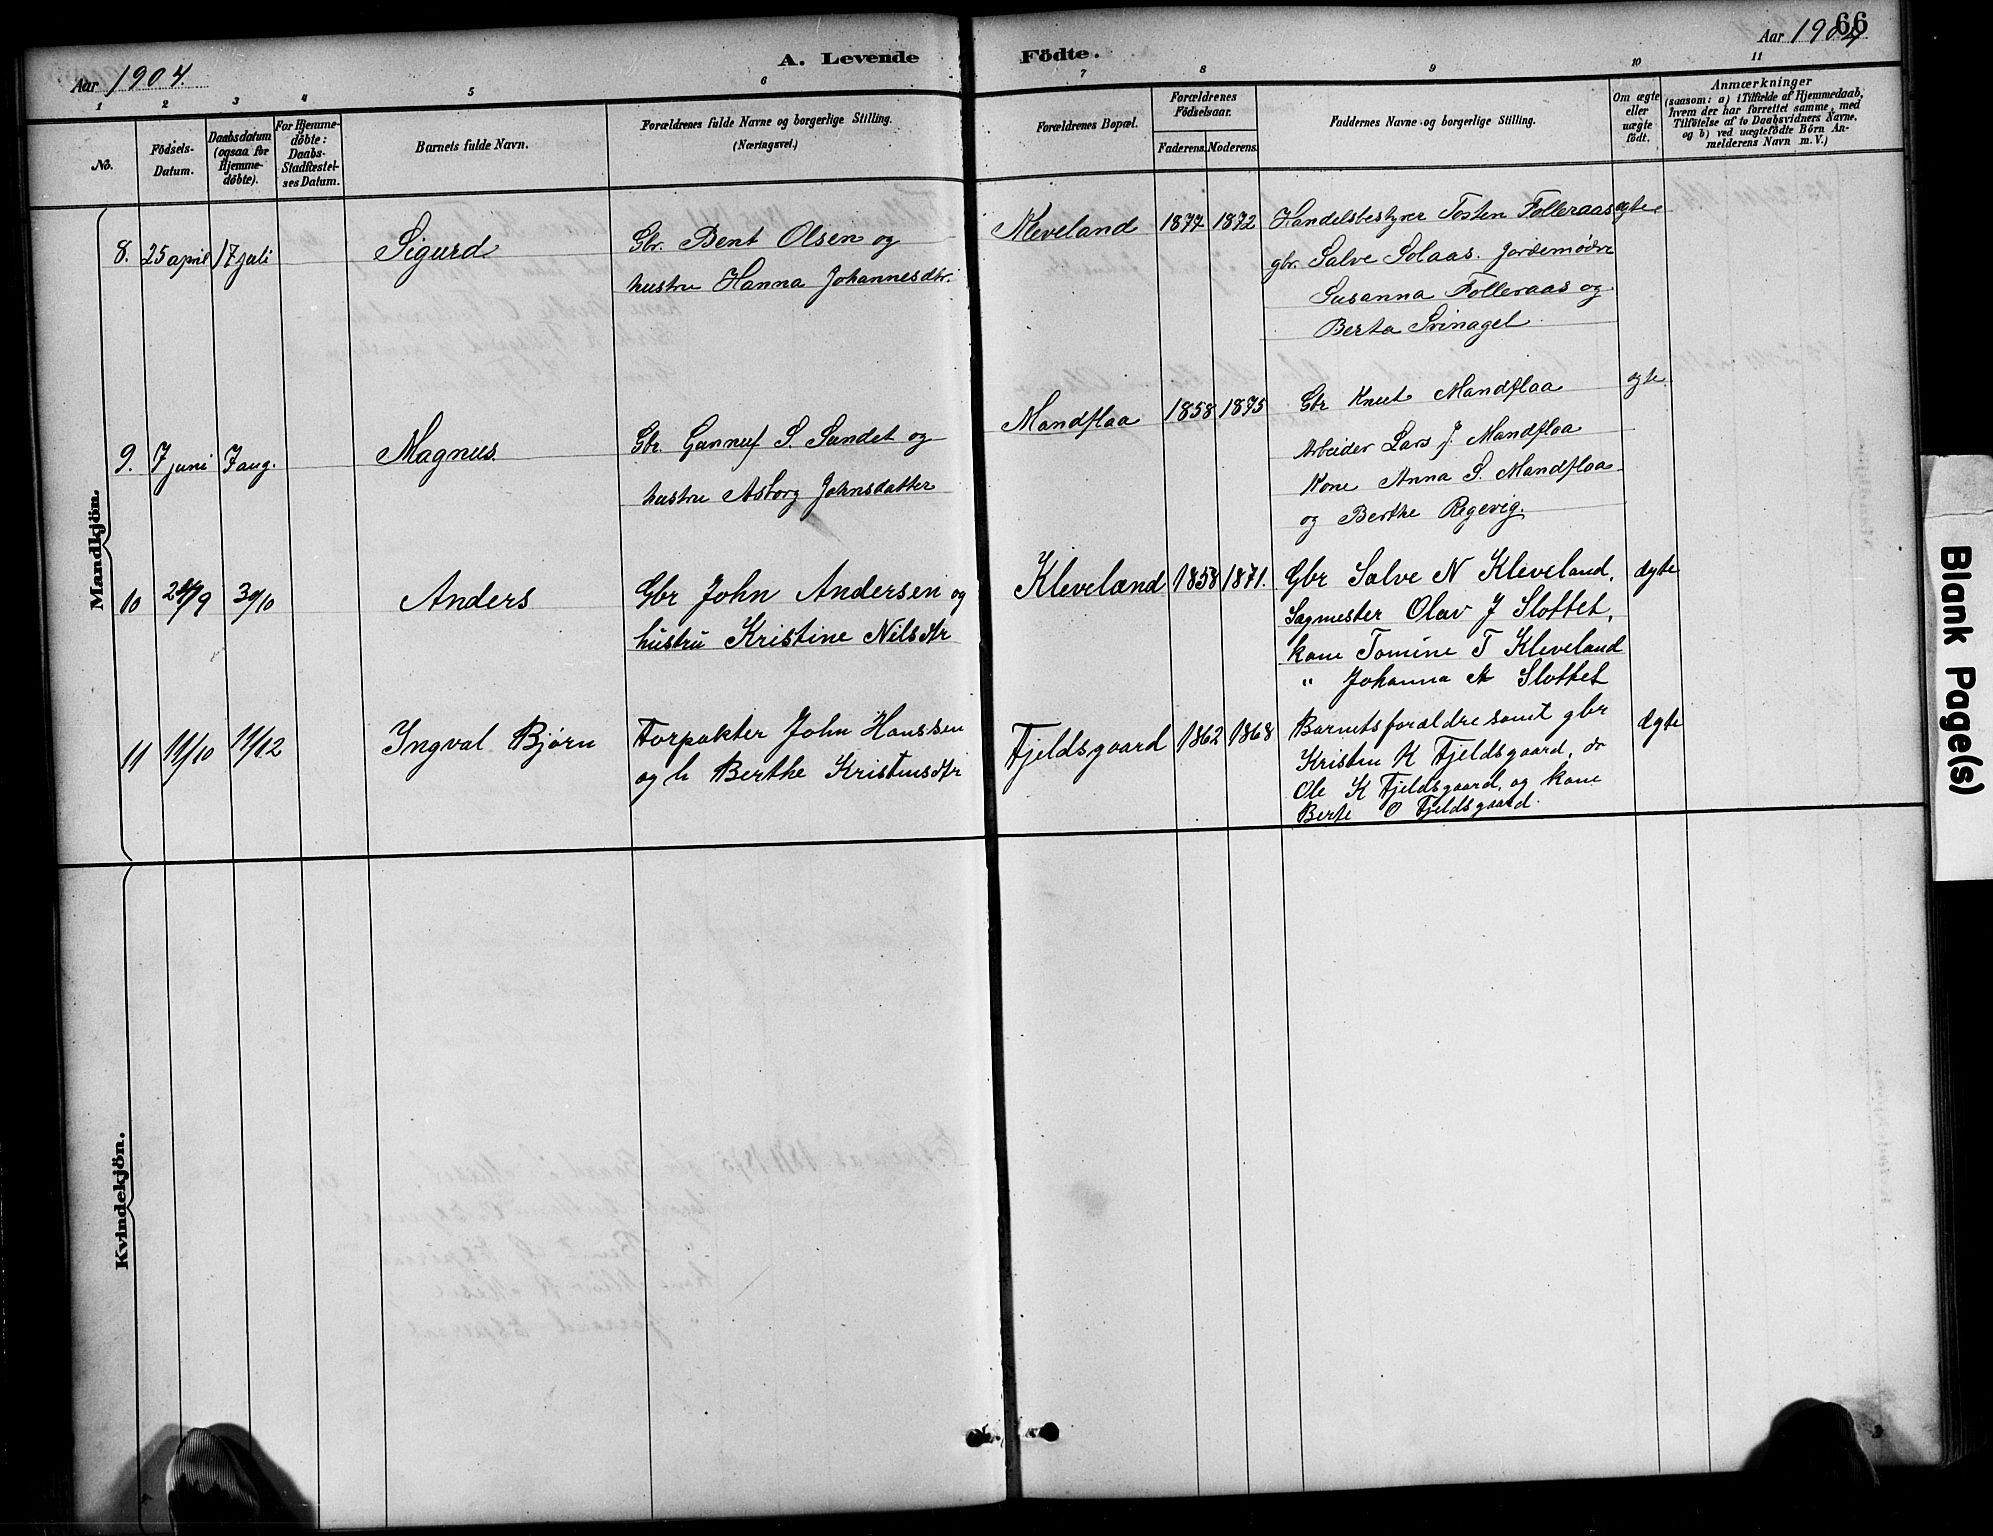 66
Aar 1904.
A. Levende Födte.
Aar 1904
1 2 3 4 5 6 7 8 9 10 11
No.
Födsels-
Datum.
Daabsdatum
(ogsaa for
Hjemme-
döbte).
For Hjemme-
döbte:
Daabs-
Stadfæstel-
ses Datum.
Barnets fulde Navn.
Forældrenes fulde Navne og borgerlige Stilling.
(Næringsvei.)
Forældrenes Bopæl.
Forældrenes
Födselsaar.
Faderens. Moderens.
Faddernes Navne og borgerlige Stilling.
Om ægte
eller
uægte
født.
Anmærkninger
(saasom: a) i Tilfælde af Hjemmedaab,
hvem der har forrettet samme, med
Tilföielse af to Daabsvidners Navne,
og b) ved uægtefödte Börn An-
melderens Navn m. V.)
Mandkjön.
8. 25 april 17 juli Sigurd
Gbr. Bent Olsen og
hustru Hanna Johannesdtr.
Kleveland 1877 1872
Handelsbestyrer Tosten Folleraas
gbr. Salve Solaas. Jordemødre
Susanna Folleraas og
Berta Svinagel
ægte
9. 7 juni 7 aug. Magnus
Gbr. Gunnuf S. Sandet og
hustru Asborg Johnsdatter
Mandflaa 1858 1875
Gbr Knut Mandflaa
Arbeider Lars J. Mandflaa
Kone Anna S. Mandflaa
og Berthe Regevig.
ægte
10 3%10 Anders
Gbr John Andersen og
hustru Kristine Nilsdtr
Kleveland 1858 1871.
Gbr Salve N Kleveland,
Sagmester Olav J Slottet,
kone Tomine T Kleveland
" Johanna A Slottet
ægte
11 11/10 11/12 Ingval Bjørn
Forpakter John Hanssen
og h Berthe Kristensdtr
Fjeldsgaard 1862 1868
Barnets forældre samt gbr
Kristen K Fjeldsgaard, do
Ole K Fjeldsgaard, og kone
Berte O Fjeldsgaard.
ægte
Kvindekjön.
Blank Page(s)